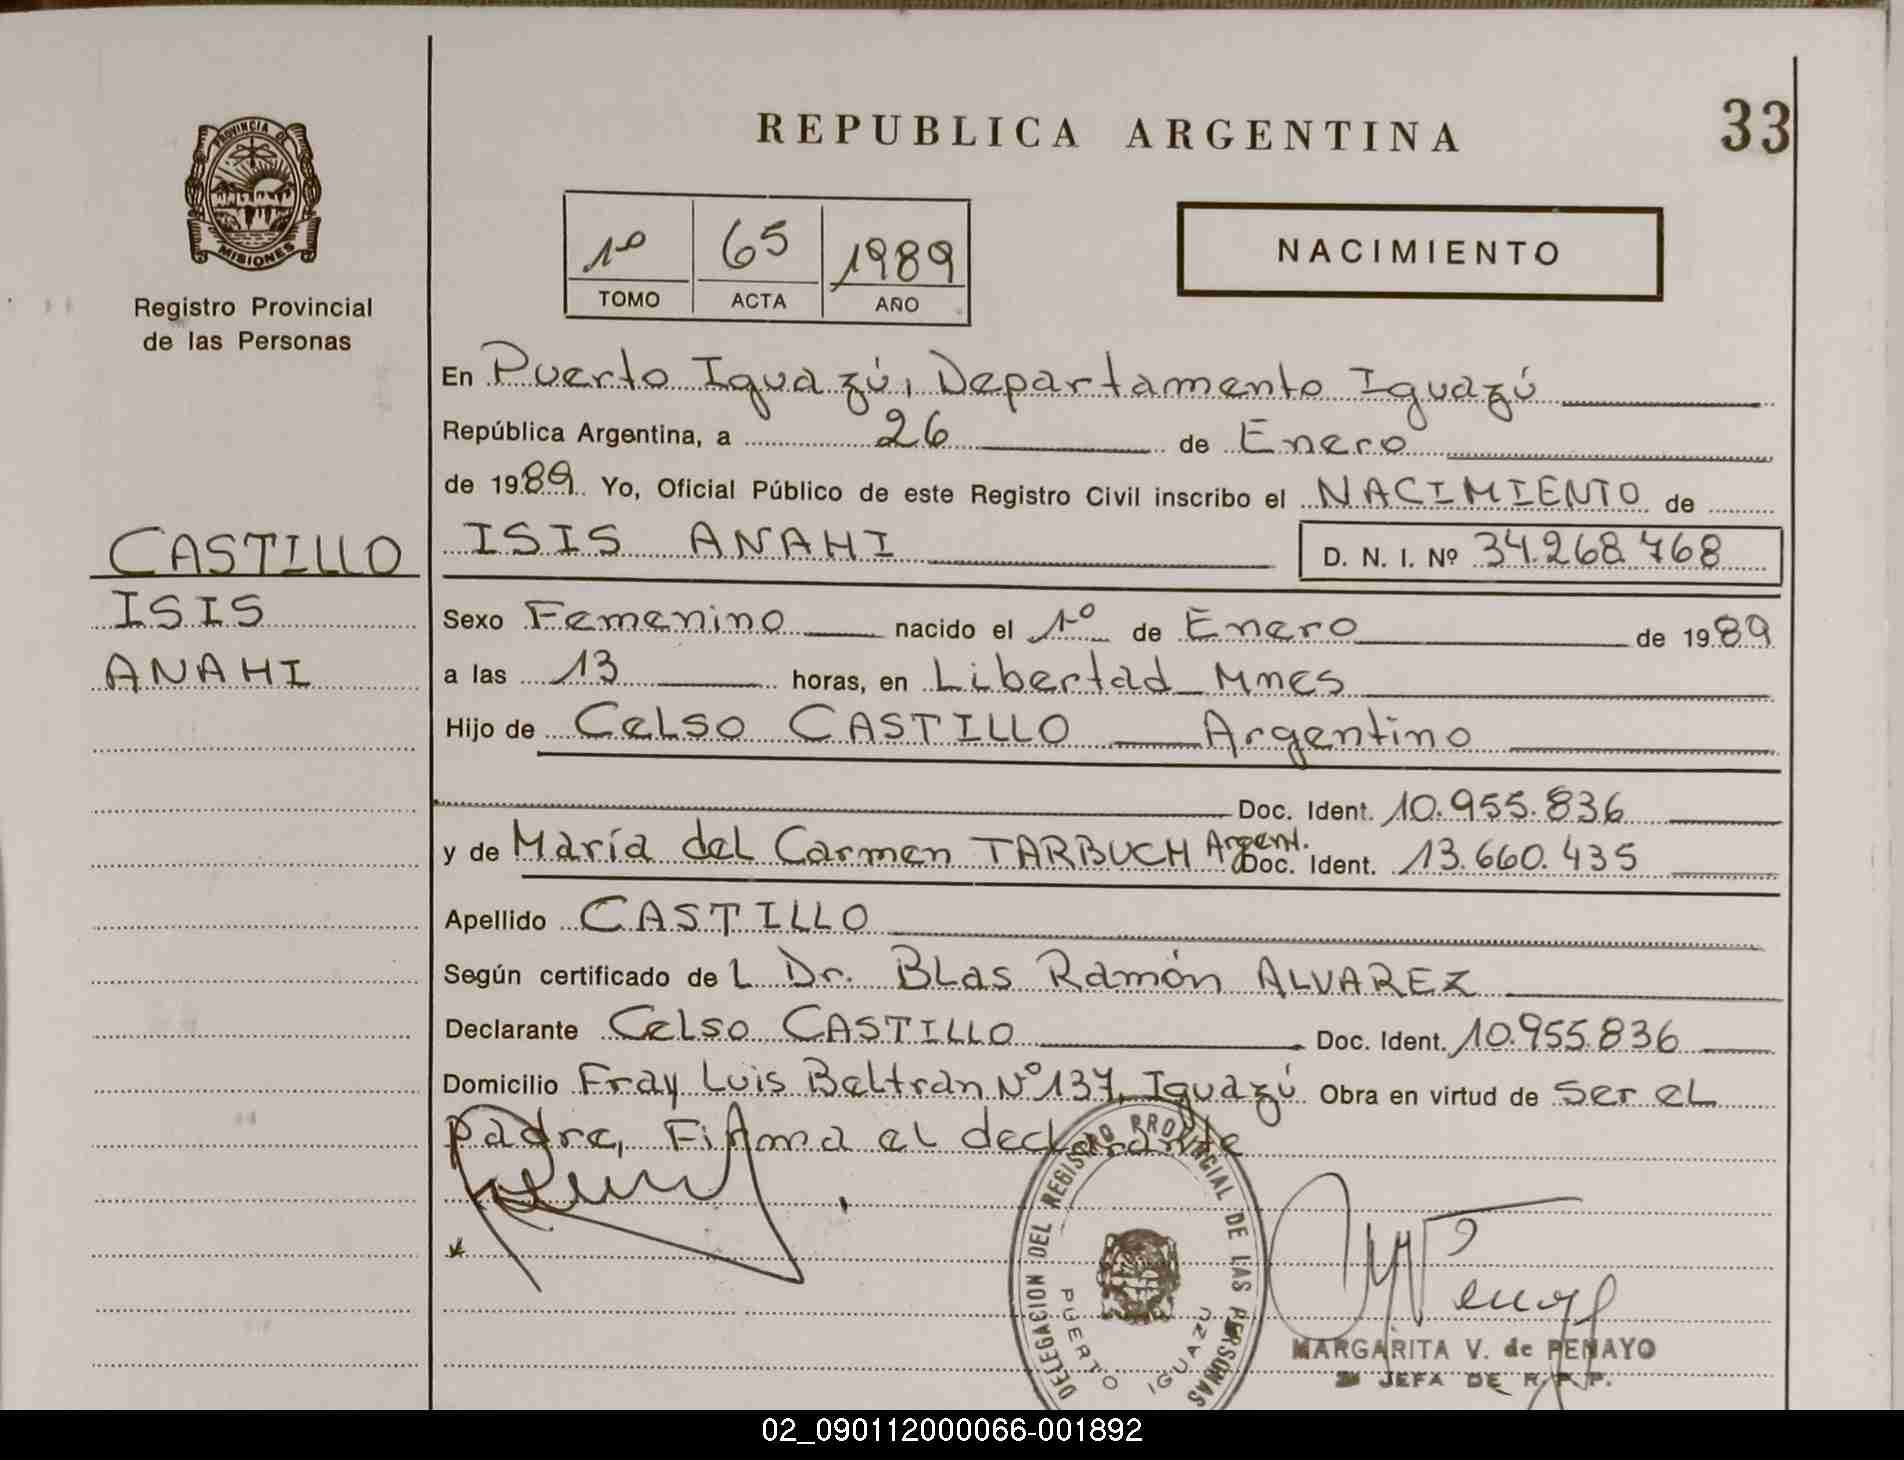 REPUBLICA ARGENTINA
33
PROVINCIA DE
MISIONES
Registro Provincial
de las Personas
1º 65 1989
TOMO ACTA AÑO
NACIMIENTO
En Puerto Iguazú, Departamento Iguazú
República Argentina, a 26 de Enero
de 1989 Yo, Oficial Público de este Registro Civil inscribo el NACIMIENTO de
CASTILLO
ISIS
ANAHI
ISIS ANAHI D. N. I. Nº 34.268.768
Sexo Femenino nacido el 1º de Enero de 1989
a las 13 horas, en Libertad Mnes
Hijo de Celso CASTILLO Argentino
Doc. Ident. 10.955.836
y de María del Carmen TARBUCH Argent. Doc. Ident. 13.660.435
Apellido CASTILLO
Según certificado de L Dr. Blas Ramón ALVAREZ
Declarante Celso CASTILLO Doc. Ident. 10.955.836
Domicilio Fray Luis Beltran Nº 137, Iguazú Obra en virtud de ser el
padre, Firma el declarante
DELEGACION DEL REGISTRO PROVINCIAL DE LAS PERSONAS
PUERTO IGUAZU
MARGARITA V. de PENAYO
JEFA DE R. P. P.
02_090112000066-001892